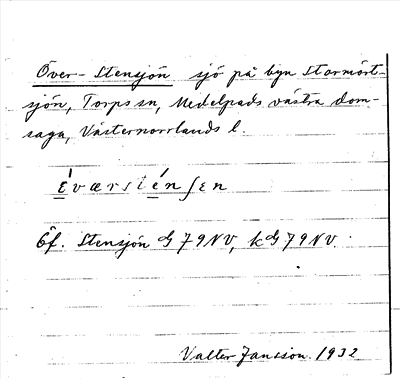 Över-Stensjön sjö på byn Stormört-
sjön, Torps sn, Medelpads västra dom-
saga, Västernorrlands l.
Cf. Stensjön G 79 NV, kG 79 NV.
Valter Jansson. 1932